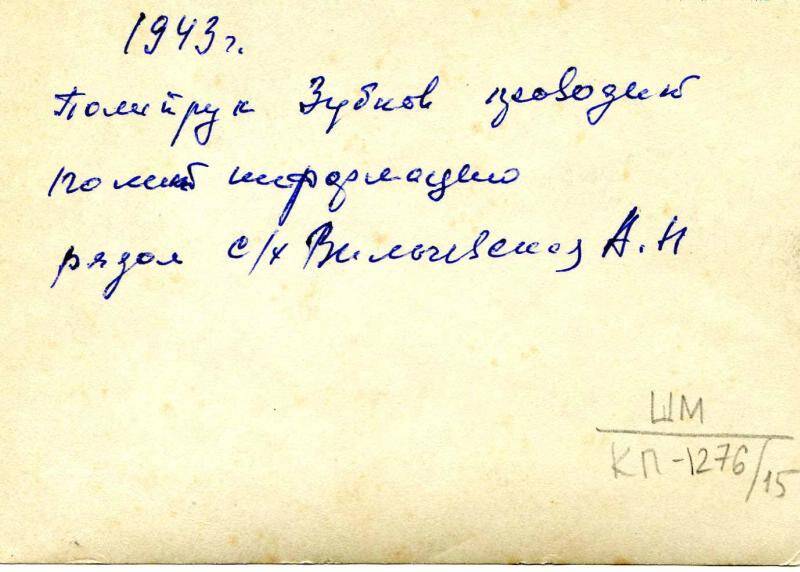 1943 г.
Политрук Зубков проводит
полит информацию
рядом с/х Вильчевская А. Н
ШМ
КП-1276/15